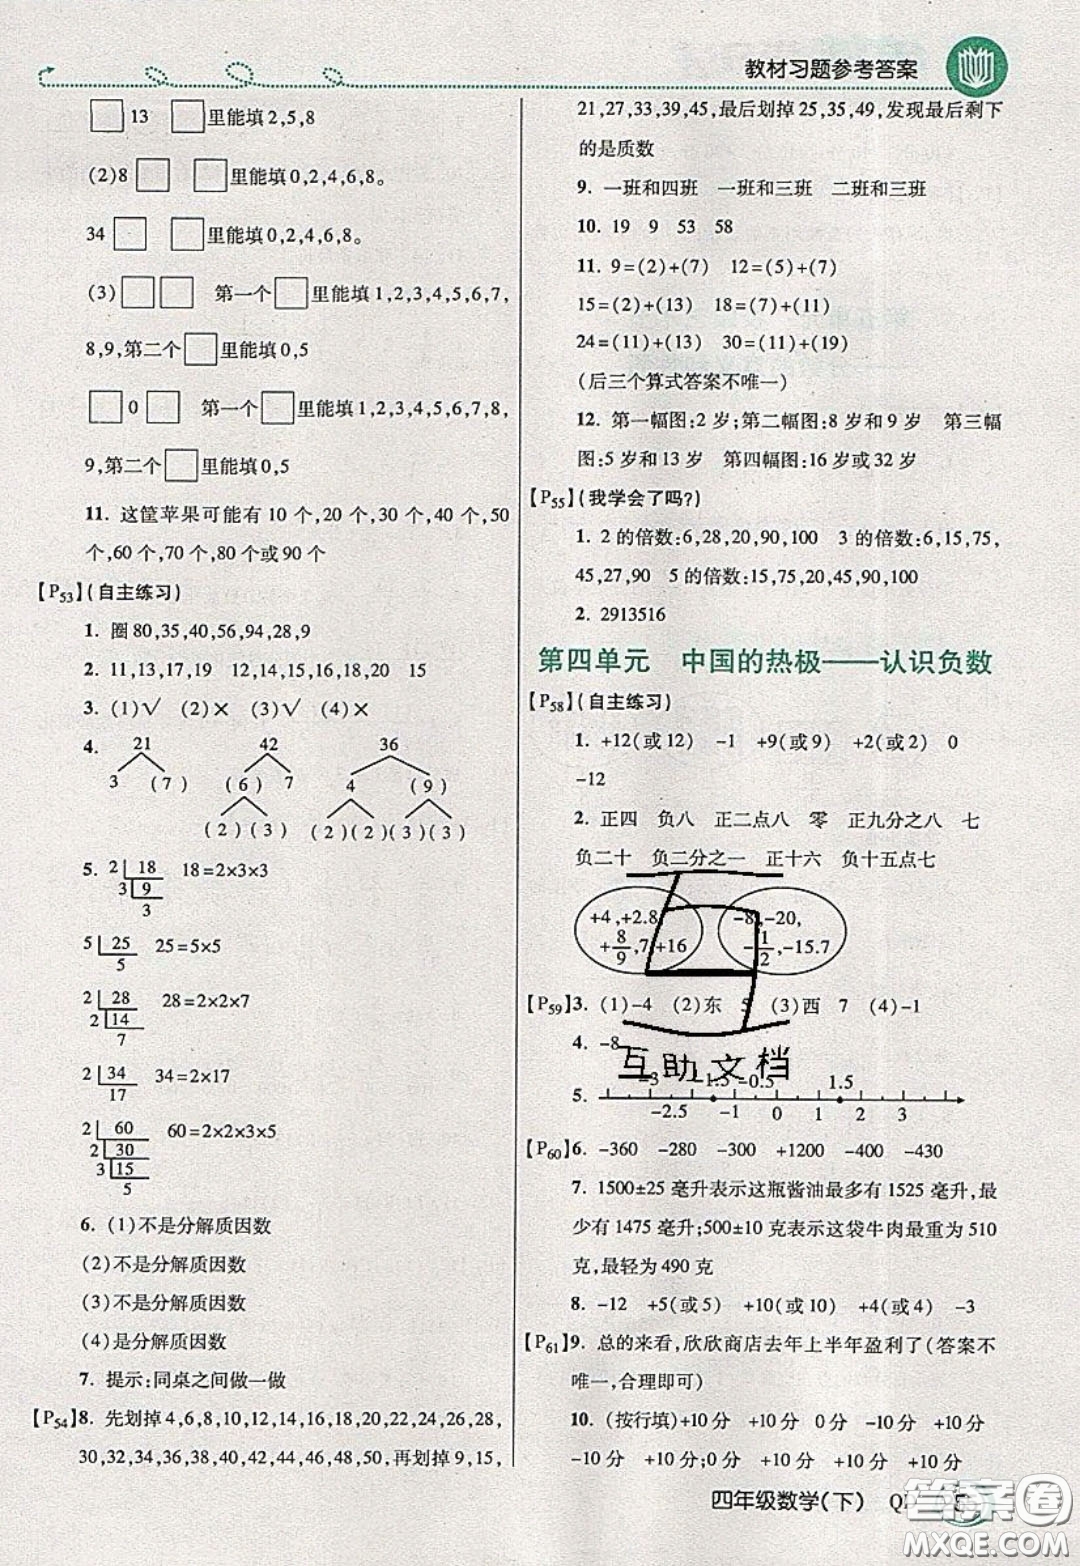 教材习题参考答案
□13 □里能填2,5,8
(2)8□ □里能填0,2,4,6,8。
34□ □里能填0,2,4,6,8。
(3)□□ 第一个□里能填1,2,3,4,5,6,7,
8,9,第二个□里能填0,5
□0□ 第一个□里能填1,2,3,4,5,6,7,8,
9,第二个□里能填0,5
11. 这筐苹果可能有10个,20个,30个,40个,50
个,60个,70个,80个或90个
【P53】(自主练习)
1. 圈80,35,40,56,94,28,9
2. 11,13,17,19 12,14,15,16,18,20 15
3. (1)√ (2)× (3)√ (4)×
4. 21 42 36
3 (7) (6) 7 4 (9)
(2)(3) (2)(2)(3)(3)
5. 2 18 18=2×3×3
3 9
3
5 25 25=5×5
5
2 28 28=2×2×7
2 14
7
2 34 34=2×17
17
2 60 60=2×2×3×5
2 30
3 15
5
6. (1)不是分解质因数
(2)不是分解质因数
(3)不是分解质因数
(4)是分解质因数
7. 提示:同桌之间做一做
【P54】8. 先划掉4,6,8,10,12,14,16,20,22,24,26,28,
30,32,34,36,38,40,42,44,46,48,50,再划掉9,15,
21,27,33,39,45,最后划掉25,35,49,发现最后剩下
的是质数
9. 一班和四班 一班和三班 二班和三班
10. 19 9 53 58
11. 9=(2)+(7) 12=(5)+(7)
15=(2)+(13) 18=(7)+(11)
24=(11)+(13) 30=(11)+(19)
(后三个算式答案不唯一)
12. 第一幅图:2岁;第二幅图:8岁和9岁 第三幅
图:5岁和13岁 第四幅图:16岁或32岁
【P55】(我学会了吗?)
1. 2的倍数:6,28,20,90,100 3的倍数:6,15,75,
45,27,90 5的倍数:15,75,20,45,90,100
2. 2913516
第四单元 中国的热极——认识负数
【P58】(自主练习)
1. +12(或12) -1 +9(或9) +2(或2) 0
-12
2. 正四 负八 正二点八 零 正九分之八 七
负二十 负二分之一 正十六 负十五点七
+4,+2.8, -8,-20,
+8/9,7,+16 -1/2,-15.7
【P59】3. (1)-4 (2)东 5 (3)西 7 (4)-1
4. -8
互助文档
-3 -1.5 -0.5 1.5
5. -2.5 -1 0 1 2 3
【P60】6. -360 -280 -300 +1200 -400 -430
7. 1500±25毫升表示这瓶酱油最多有1525毫升,最
少有1475毫升;500±10克表示这袋牛肉最重为510
克,最轻为490克
8. -12 +5(或5) +10(或10) +4(或4) -3
【P61】9. 总的来看,欣欣商店去年上半年盈利了(答案不
唯一,合理即可)
10. (按行填)+10分 +10分 0分 -10分 +10分
-10分 +10分;0分 -10分 +10分 +10分 +10分
四年级数学(下)
答案圈
MXQE.COM